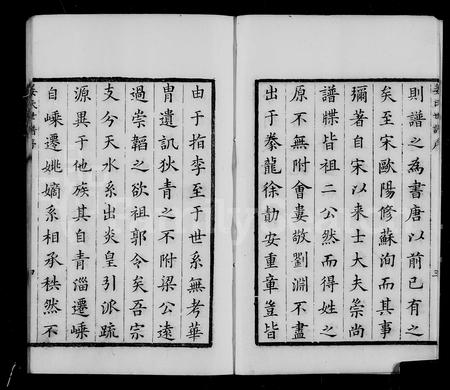 則譜之為書唐以前已有之
矣至宋歐陽修蘇洵而其事
彌著自宋以來士大夫崇尚
譜牒皆祖二公然而得姓之
原不無附會婁敬劉淵不盡
出于豢龍徐勣安重章豈皆
由于指李至于世系無考華
胄遺訊狄青之不附梁公遠
過崇韜之欲祖郭令矣吾宗
支分天水系出炎皇引派疏
源異于他族其自青淄遷嵊
自嵊遷姚嫡系相承秩然不
姜氏世譜序
三
四